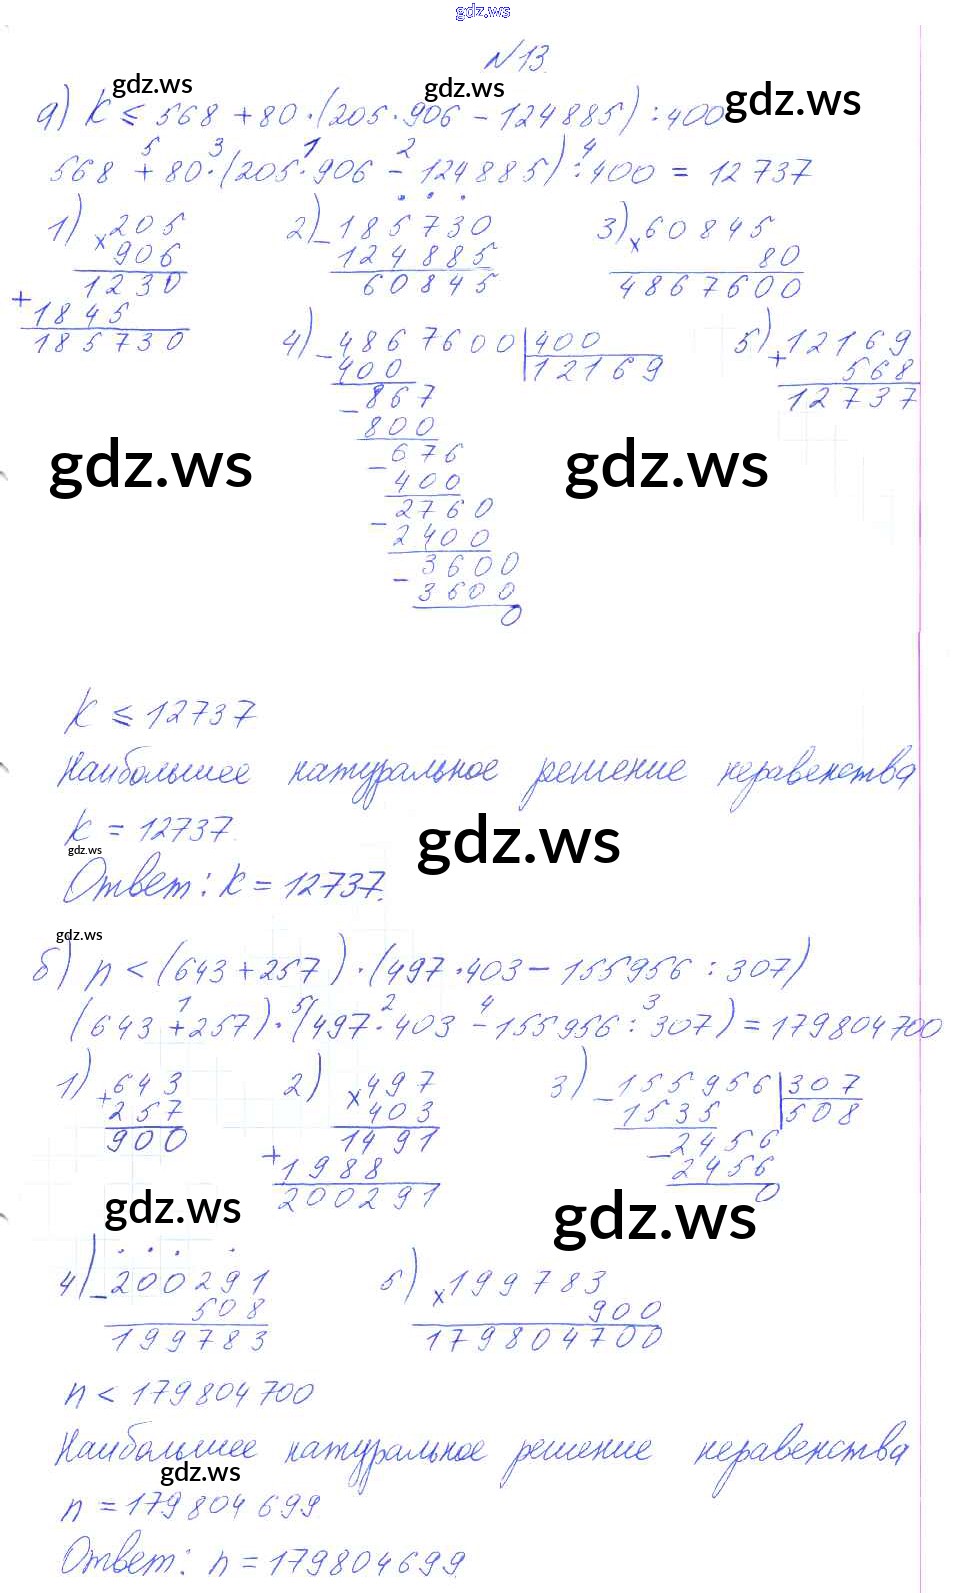 gdz.ws
N13.
gdz.ws gdz.ws gdz.ws
а) k ≤ 568 + 80 · (205 · 906 - 124885) : 400
5 3 1 2 4
568 + 80 · (205 · 906 - 124885) : 400 = 12737
1) × 205
906
1230
+ 1845
185730
2) - 185730
124885
60845
3) × 60845
80
4867600
4) - 4867600 | 400
400 12169
- 867
800
- 676
400
- 2760
2400
- 3600
3600
0
5) + 12169
568
12737
gdz.ws gdz.ws
k ≤ 12737
Наибольшее натуральное решение неравенства
k = 12737.
gdz.ws gdz.ws
Ответ: k = 12737.
gdz.ws
б) n < (643 + 257) · (497 · 403 - 155956 : 307)
1 5 2 4 3
(643 + 257) · (497 · 403 - 155956 : 307) = 179804700
1) + 643
257
900
2) × 497
403
1491
+ 1988
200291
3) - 155956 | 307
1535 508
- 2456
2456
0
gdz.ws gdz.ws
4) - 200291
508
199783
5) × 199783
900
179804700
n < 179804700
Наибольшее натуральное решение неравенства
gdz.ws
n = 179804699.
Ответ: n = 179804699.